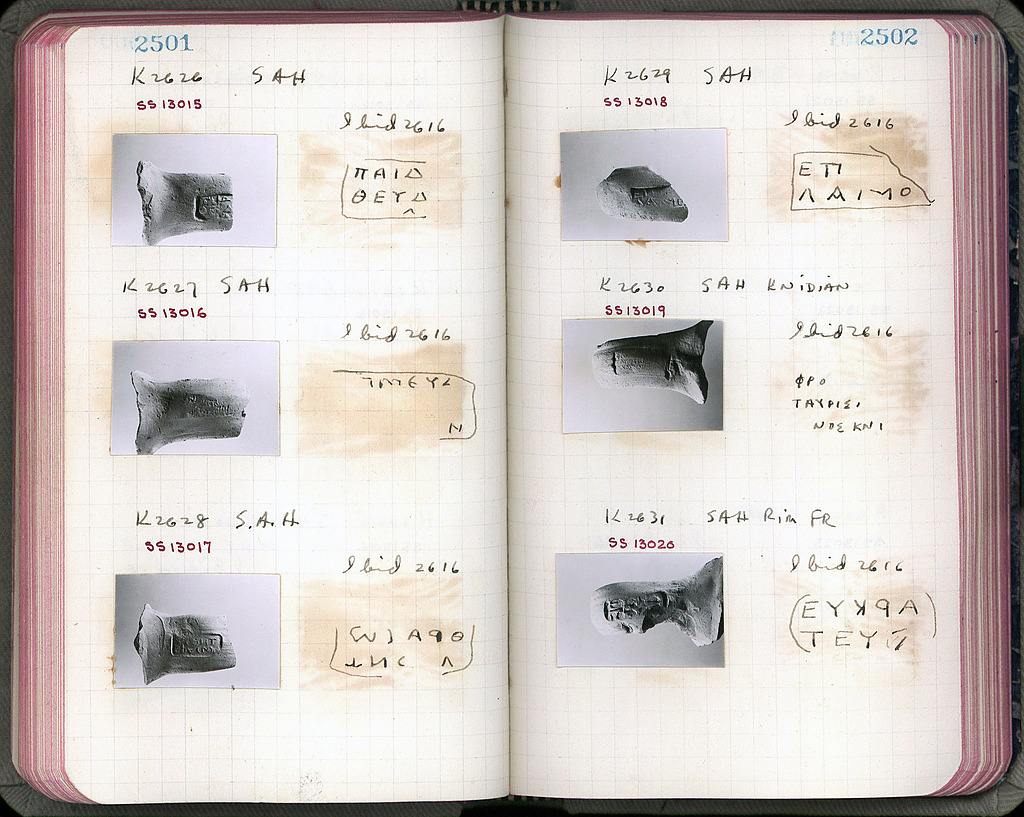 2501
K 2626 SAH
SS 13015
Ibid 2616
ΠΑΙΔ
ΘΕΥΔ
Λ
K 2627 SAH
SS 13016
Ibid 2616
ΜΕΥΔ
Ν
K 2628 S.A.H
SS 13017
Ibid 2616
2502
K 2629 SAH
SS 13018
Ibid 2616
ΕΠ
ΛΑΙΜΟ
K 2630 SAH KNIDIAN
SS 13019
Ibid 2616
ΦΡΟ
ΤΑΥΡΙΣΙ
ΝΟΣ ΚΝΙ
K 2631 SAH Rim FR
SS 13020
Ibid 2616
ΤΕΥ